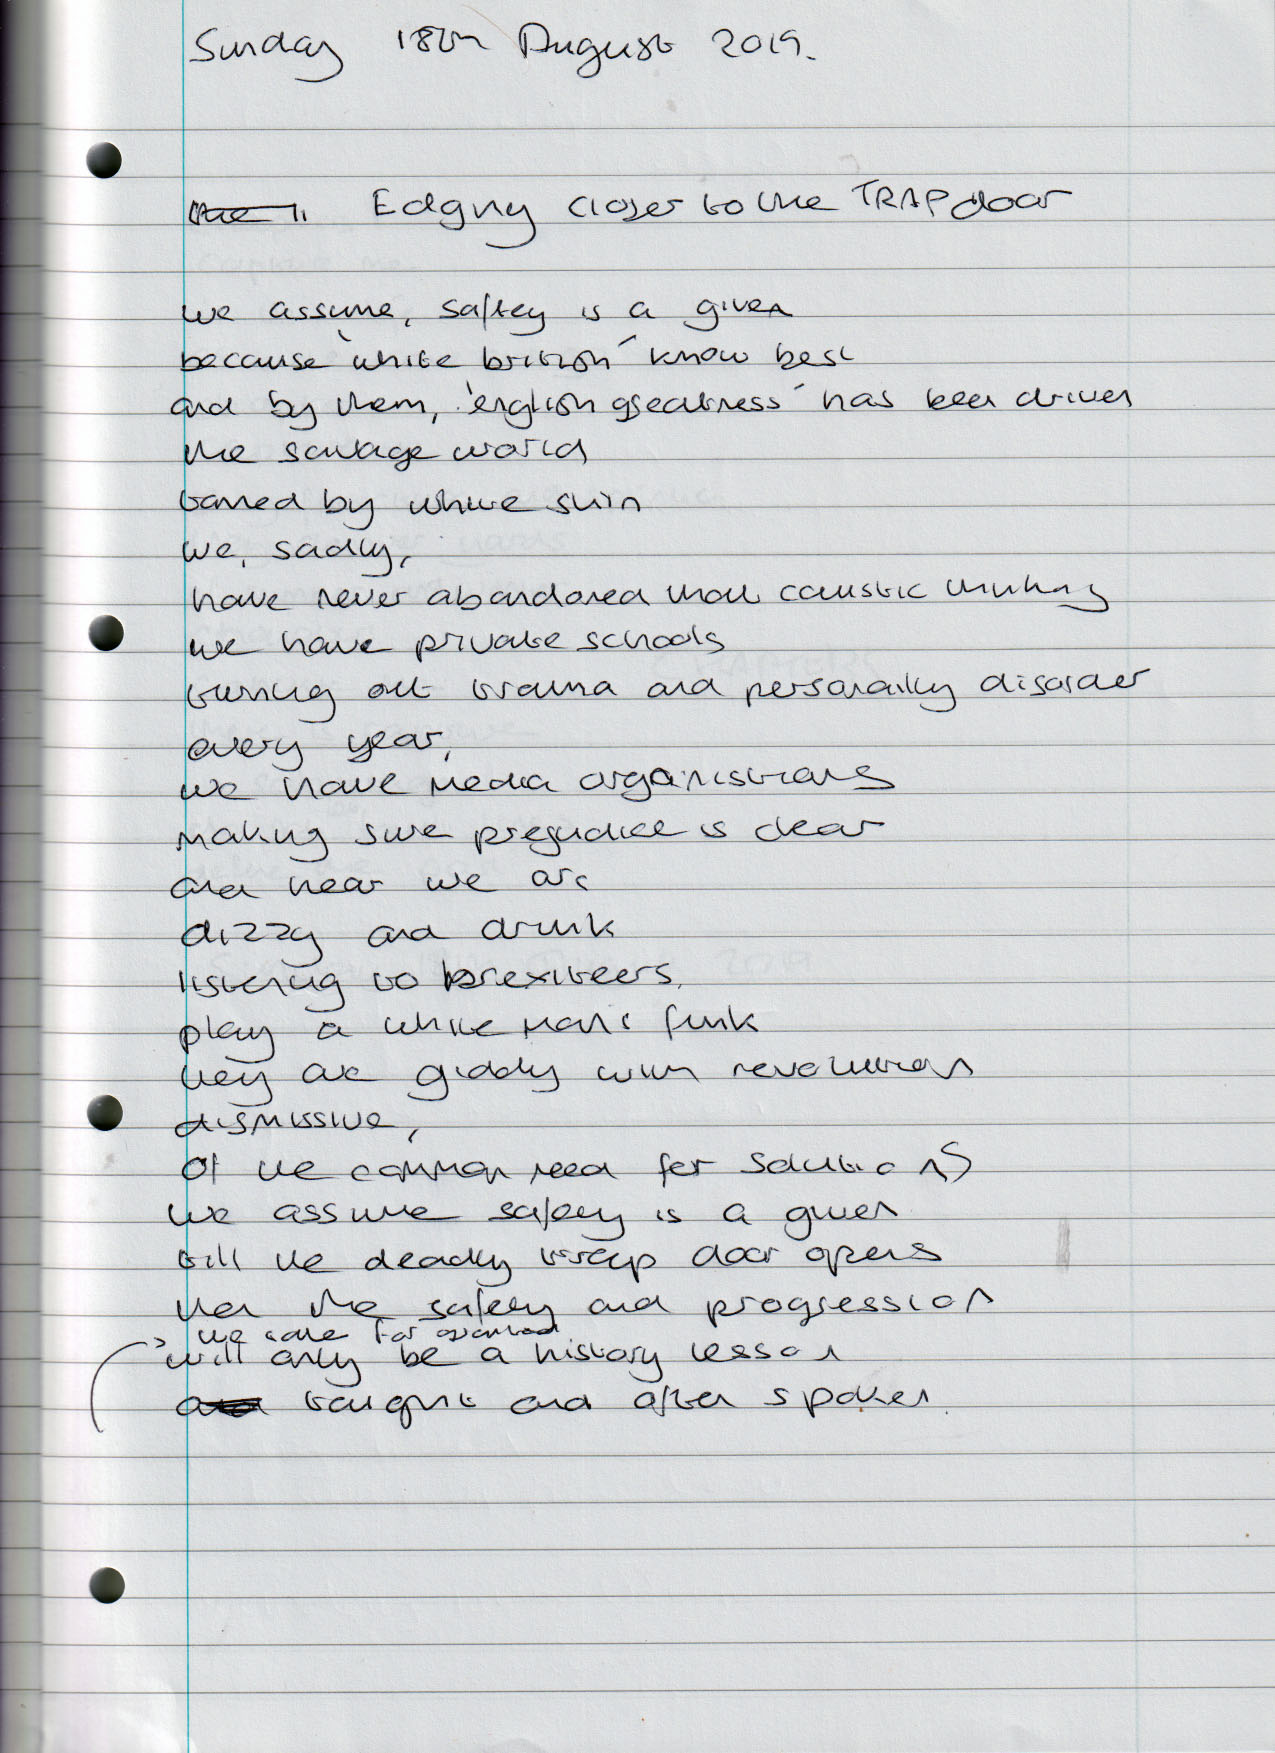 Sunday 18th August 2019.
Edging closer to the TRAPdoor
we assume, saftey is a given
because 'white british' know best
and by them, 'english greatness' has been driven
the savage world
tamed by white skin
we, sadly,
have never abandoned that caustic thinking
we have private schools
turning out trauma and personality disorder
every year,
we have media organisations
making sure prejudice is clear
and hear we are
dizzy and drunk
listening to brexiteers.
play a white man's funk
they are giddy with revolution
dismissive,
of the common need for solutions
we assume safety is a given
till the deadly trap door opens
then the safety and progression
we take for granted
will only be a history lesson
taught and often spoken